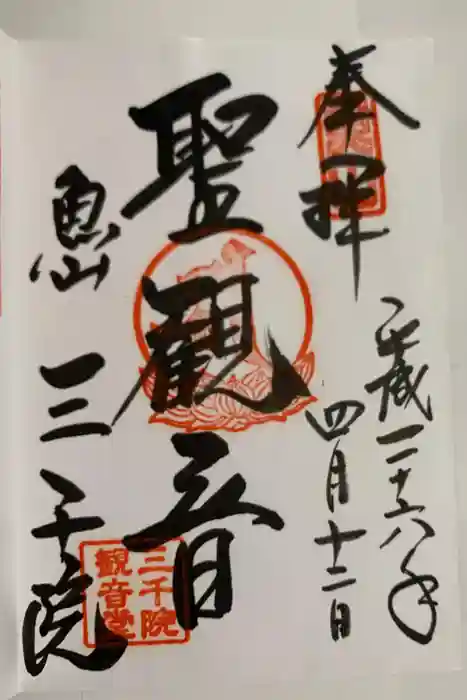 奉拝
平成二十六年
四月十二日
聖観音
魚山
三千院
三千院
観音堂